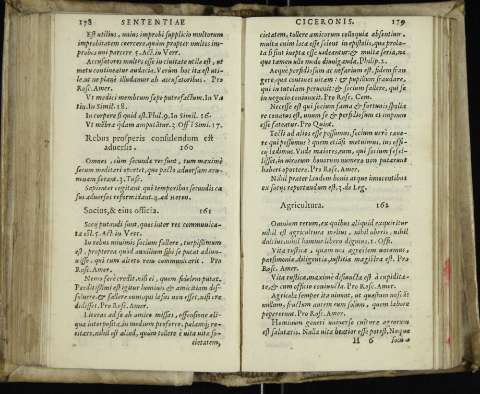 178 SENTENTIAE
Est utilius, unius improbi supplicio multorum
improbitatem coercere, quàm propter multos im-
probos uni parcere. 5. Act. in Verr.
Accusatores multos esse in ciuitate utile est, ut
metu contineatur audacia. Verùm hoc ita est uti-
le, ut ne planè illudamur ab accusatoribus. Pro
Rosc. Amer.
Vt medici membrum sæpe putrefactum. In Va
tin. In Simil. 18.
In corpore si quid est. Phil. 9. In Simil. 16.
Vt mẽbra quædam amputãtur. 3. Off. ĩ Simi. 17.
Rebus prosperis considendum est
aduersis. 160
Omnes, cùm secundæ res sunt, tum maximè
secum meditari oportet, quo pacto aduersam ærũ-
nam ferant. 3. Tusc.
Sapienter cogitant qui temporibus secundis ca
sus aduersos reformidant. 4. ad Heren.
Socius, & eius officia. 161
Sceu putandi sunt, quos inter res communica-
ta est. 5. Act. in Verr.
In rebus minimis socium fallere, turpissimum
est, propterea quòd auxilium sibi se putat adiun-
xisse, qui cum altero rem communicauit. Pro
Rosc. Amer.
Nemo ferè credit, nisi ei, quem fidelem putat.
Perditissimi est igitur hominis & amicitiam dis-
soluere, & fallere eum, qui læsus non esset, nisi cre
didisset. Pro Rosc. Amer.
Literas ad se ab amico missas, offensione ali-
qua interposita, in medium proferre, palamq; re-
citare, nihil est aliud, quàm tollere è uita uitæ so-
cietatem,
CICERONIS. 179
cietatem, tollere amicorum colloquia absentium.
multa enim ioca esse solent in epistolis, quæ prola-
ta si sint inepta esse uideantur: & multa seria, ne-
que tamen ullo modo diuulganda. Philip. 2.
Aeque perfidiosum ac nefarium est, fidem fran
gere, quæ continet uitam: & pupillum fraudare,
qui in tutelam peruenit: & socium fallere, qui se
in negocio coniunxit. Pro Rosc. Com.
Necesse est qui socium fama & fortunis spolia-
re conatus est, unum se & perfidiosum et impium
esse fateatur. Pro Quint.
Tecti ad alios esse possumus, socium uerò caue-
re qui possumus? quem etiãsi metuimus, ius offi-
cij lædimus. Vnde maiores, eum, qui socium fefel-
lisset, in uirorum bonorum numero non putarunt
haberi oportere. Pro Rosc. Amer.
Nihil præter laudem bonis atque innocentibus
ex sociis reportandum est. 3. de Leg.
Agricultura. 162
Omnium rerum, ex quibus aliquid exquiritur
nihil est agricultura melius, nihil uberius, nihil
dulcius, nihil homine libero dignius. 1. Offi.
Vita rustica, quam uos agrestem uocamus,
parsimoniæ, diligentiæ, iustitiæ magistra est. Pro
Rosc. Amer.
Vita rustica, maximè disiuncta est à cupidita-
te, & cum officio coniuncta. Pro Rosc. Amer.
Agricolæ semper ita uiuunt, ut
nullum, fructum autem eum solum, quem labore
pepererunt. Pro Rosc. Amer.
Hominum generi uniuerso cultura agrorum
est salutaris. Nulla uita beatior esse potest, Neque
H 6